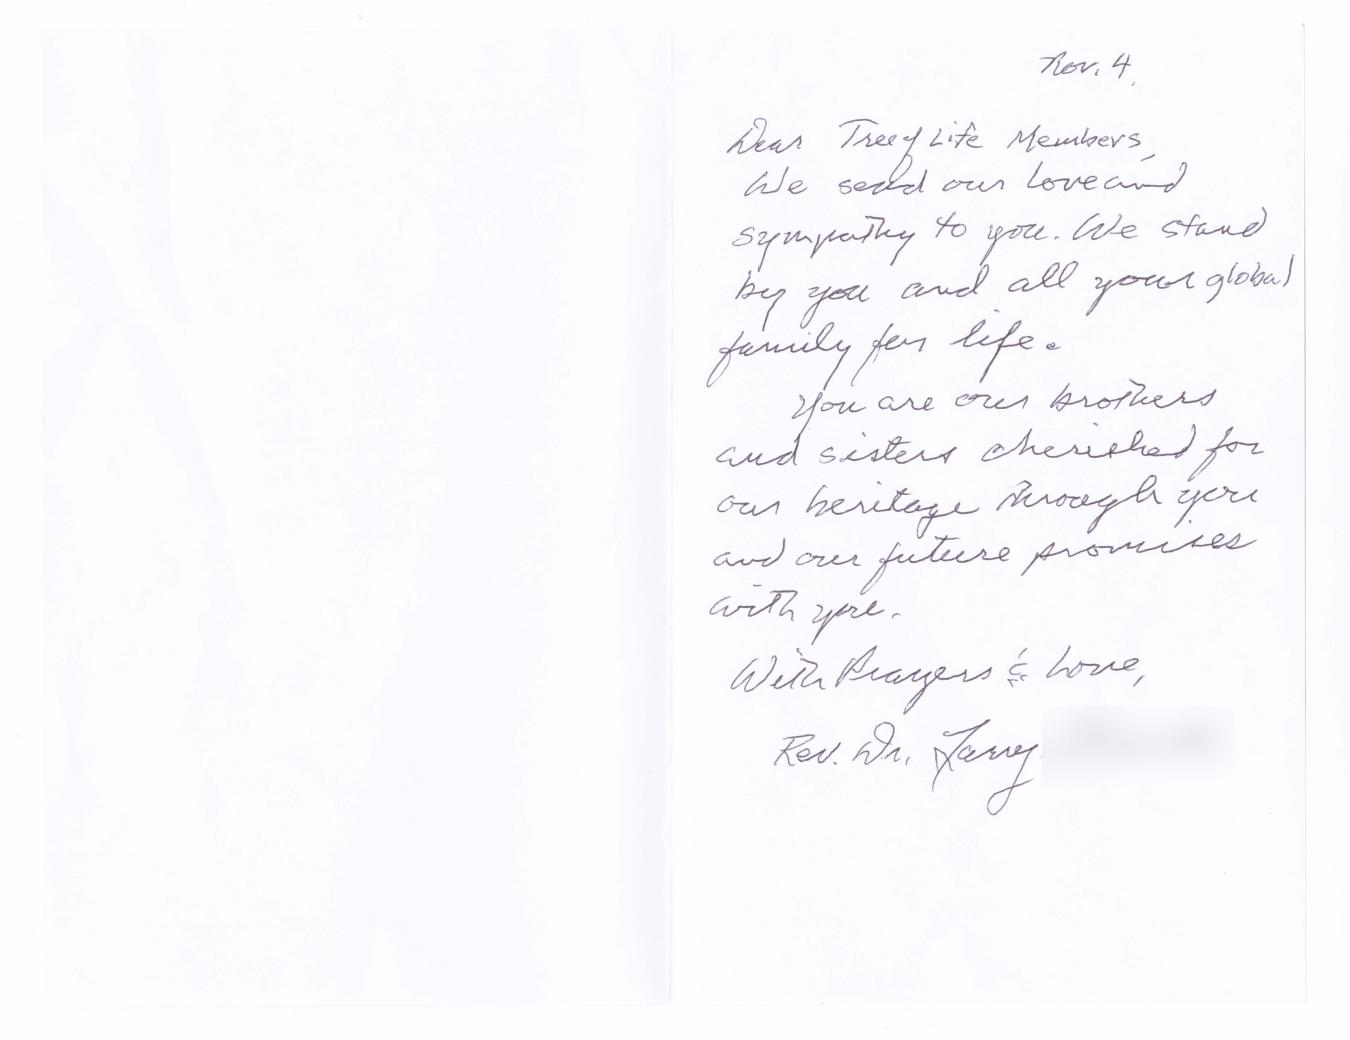 Nov. 4
Dear Tree of Life Members,
We send our love and
sympathy to you. We stand
by you and all your global
family for life.
You are our brothers
and sisters cherished for
our heritage through you
and our future promises
with you.
With Prayers & Love,
Rev. Dr. Larry